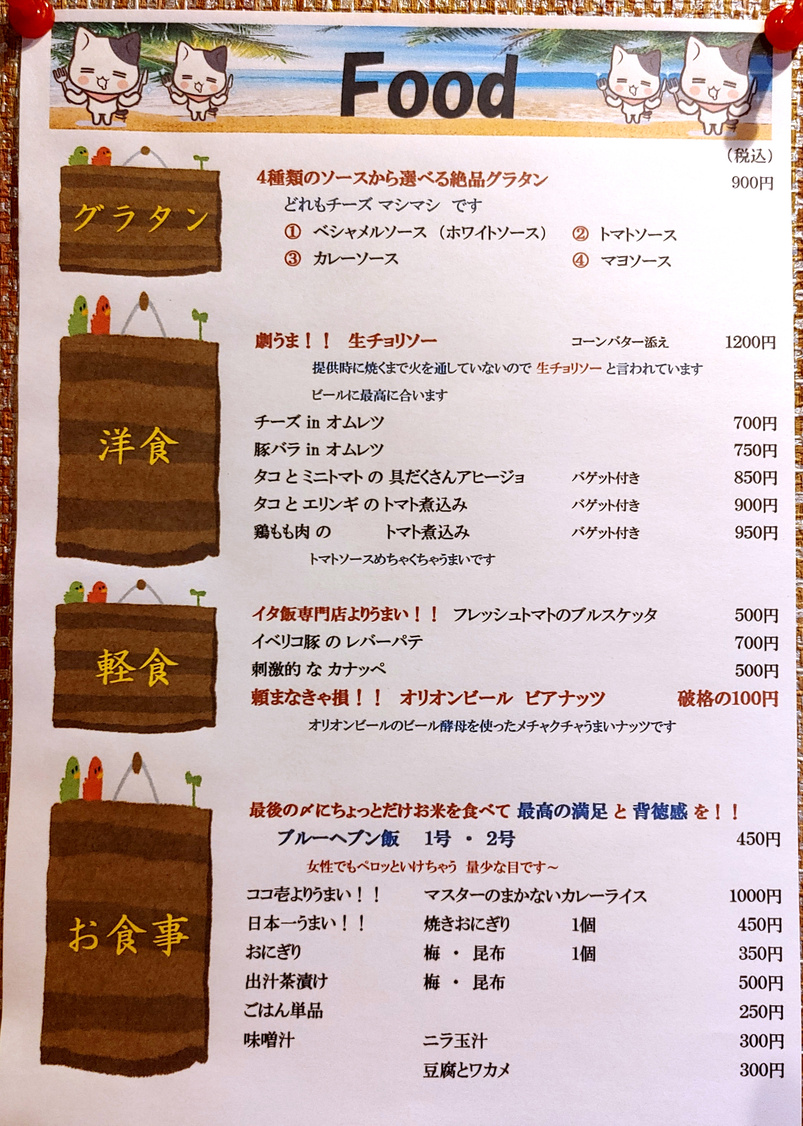 Food
(税込)
グラタン
4種類のソースから選べる絶品グラタン 900円
どれもチーズ マシマシ です
① ベシャメルソース (ホワイトソース) ② トマトソース
③ カレーソース ④ マヨソース
洋食
劇うま!! 生チョリソー コーンバター添え 1200円
提供時に焼くまで火を通していないので 生チョリソー と言われています
ビールに最高に合います
チーズ in オムレツ 700円
豚バラ in オムレツ 750円
タコ と ミニトマト の 具だくさんアヒージョ バゲット付き 850円
タコ と エリンギ の トマト煮込み バゲット付き 900円
鶏もも肉 の トマト煮込み バゲット付き 950円
トマトソースめちゃくちゃうまいです
軽食
イタ飯専門店よりうまい!! フレッシュトマトのブルスケッタ 500円
イベリコ豚 の レバーパテ 700円
刺激的 な カナッペ 500円
頼まなきゃ損!! オリオンビール ビアナッツ 破格の100円
オリオンビールのビール酵母を使ったメチャクチャうまいナッツです
お食事
最後の〆にちょっとだけお米を食べて 最高の満足 と 背徳感 を!!
ブルーヘブン飯 1号 ・ 2号 450円
女性でもペロッといけちゃう 量少な目です~
ココ壱よりうまい!! マスターのまかないカレーライス 1000円
日本一うまい!! 焼きおにぎり 1個 450円
おにぎり 梅 ・ 昆布 1個 350円
出汁茶漬け 梅 ・ 昆布 500円
ごはん単品 250円
味噌汁 ニラ玉汁 300円
豆腐とワカメ 300円